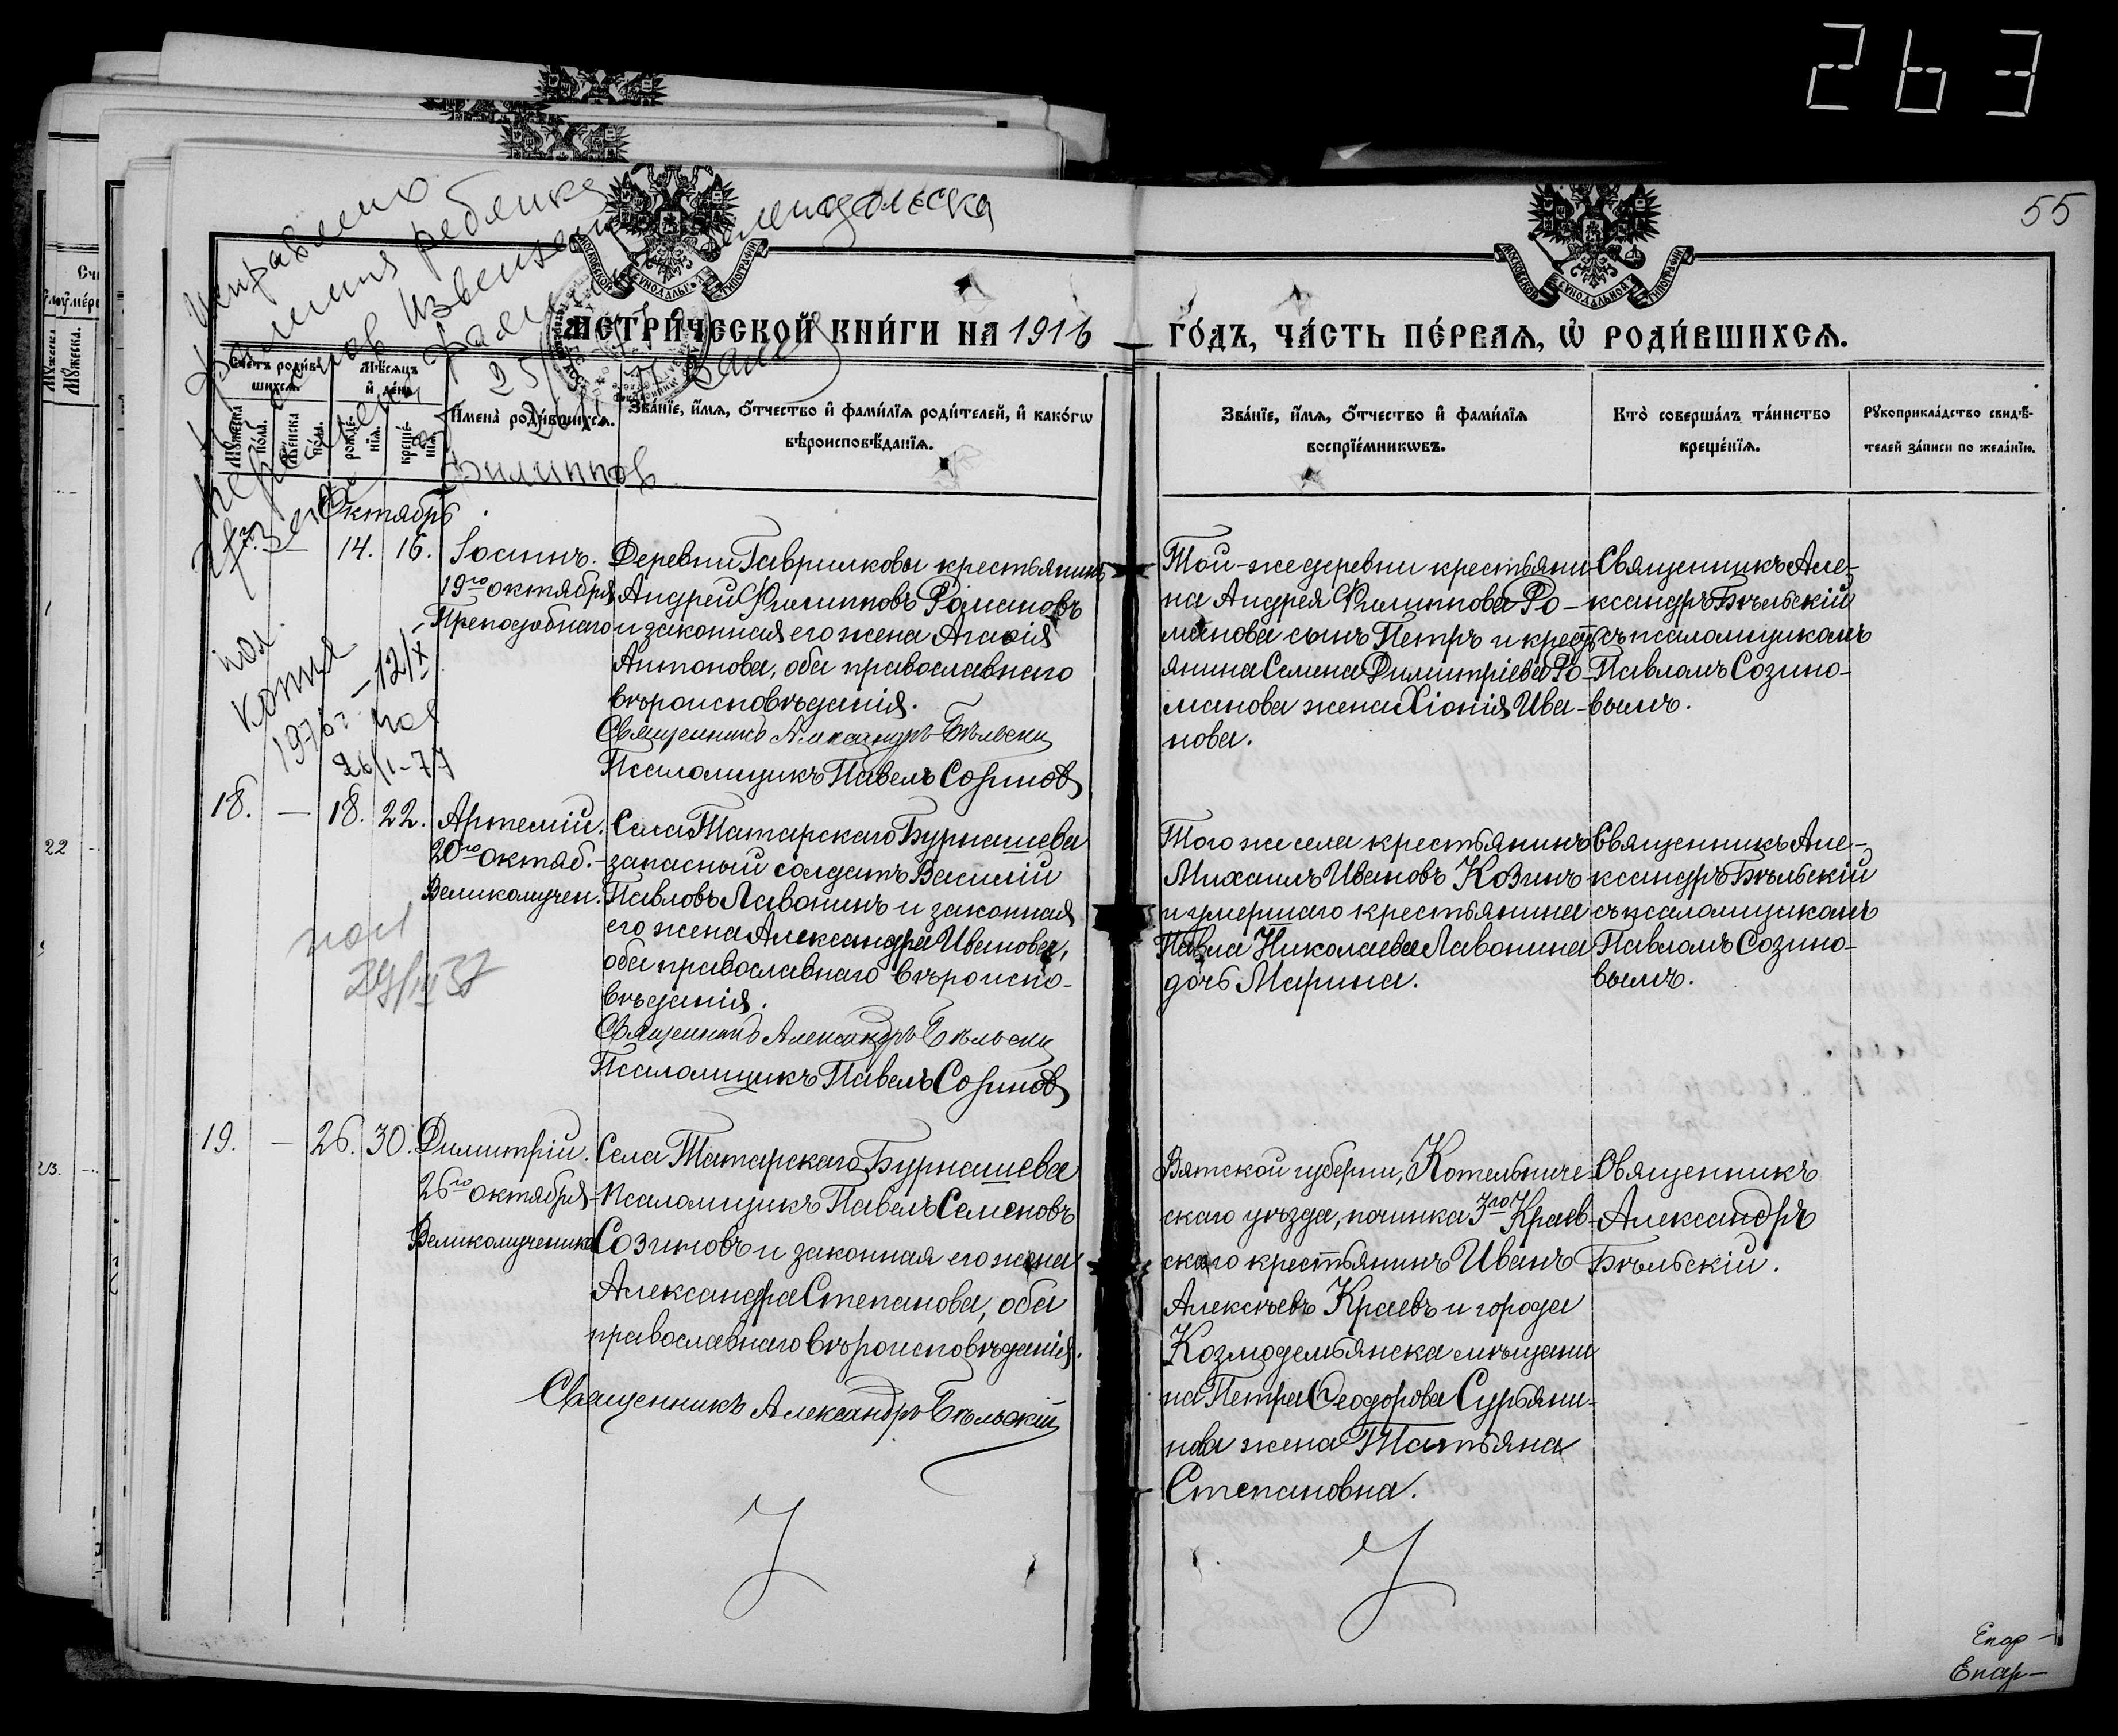 263
55
исправлено
фамилия ребенка
Извещение
Зеленодольска
МОСКОВСКОЙ СѴНОДАЛЬНОЙ ТИПОГРАФІИ
МОСКОВСКОЙ СѴНОДАЛЬНОЙ ТИПОГРАФІИ
МЕТРИ́ЧЕСКОЙ КНИ́ГИ НА 1916 ГО́ДЪ, ЧА́СТЬ ПЕ́РВАЯ, Ѽ РОДИ́ВШИХСЯ.
Сче́тъ роди́в-
шихся.
Мѣ́сяцъ
и҆ де́нь
Му́жеска по́ла.
Же́нска по́ла.
рожде́-нїя.
креще́-нїя.
И҆мена̀ роди́вшихся.
Зва́нїе, и҆́мя, ѻ҆́тчество и҆ фами́лїя роди́телей, и҆ како́гѡ
вѣроисповѣ́данїя.
Зва́нїе, и҆́мя, ѻ҆́тчество и҆ фами́лїя
воспрїе́мникѡвъ.
Кто̀ соверша́лъ та́инство
креще́нїя.
Рꙋкоприкла́дство свидѣ́-
телей за́писи по жела́нїю.
Филиппов
Октябрь
— 14. 16.
Іоаннъ.
19го октября
Преподобнаго
Деревни Гаврилковы крестьянинъ
Андрей Филипповъ Романовъ
и законная его жена Агаѳія
Антонова, оба православнаго
вѣроисповѣданія.
Священникъ Александръ Бѣльскій
Псаломщикъ Павелъ Созинов
Той-же деревни крестьяни-
на Андрея Филиппова Ро-
манова сынъ Петръ и крестъ-
янина Семена Димитріева Ро-
манова жена Хіонія Ива-
нова.
Священникъ Але-
ксандръ Бѣльскій
съ псаломщикомъ
Павломъ Созино-
вымъ.
пол.
копия
1976г. – 12/X
пол
26/I-77
18. — 18. 22.
Артемій.
20го октяб.-
Великомучен.
Села Татарскаго Бурнашева
запасный солдатъ Василій
Павловъ Лавонинъ и законная
его жена Александра Иванова,
оба православнаго вѣроиспо-
вѣданія.
Священникъ Александръ Бѣльскій
Псаломщикъ Павелъ Созинов
Того же села крестьянинъ
Михаилъ Ивановъ Козинъ
и умершаго крестьянина
Павла Николаева Лавонина
дочь Марина.
Священникъ Але-
ксандръ Бѣльскій
съ псаломщикомъ
Павломъ Созино-
вымъ.
пол
37
19. — 26. 30.
Димитрій.
26го октября-
Великомученика
Села Татарскаго Бурнашева
псаломщикъ Павелъ Семеновъ
Созиновъ и законная его жена
Александра Степанова, оба
православнаго вѣроисповѣданія.
Священникъ Александръ Бѣльскій
Вятской губерніи, Котельниче-
скаго уѣзда, починка 3го Краев-
скаго крестьянинъ Иванъ
Алексѣевъ Краевъ и города
Козмодемьянска мѣщани
на Петра Ѳеодорова Сурьяни-
нова жена Татьяна
Степановна.
Священникъ
Александръ
Бѣльскій.
Епар-
Епар-
22